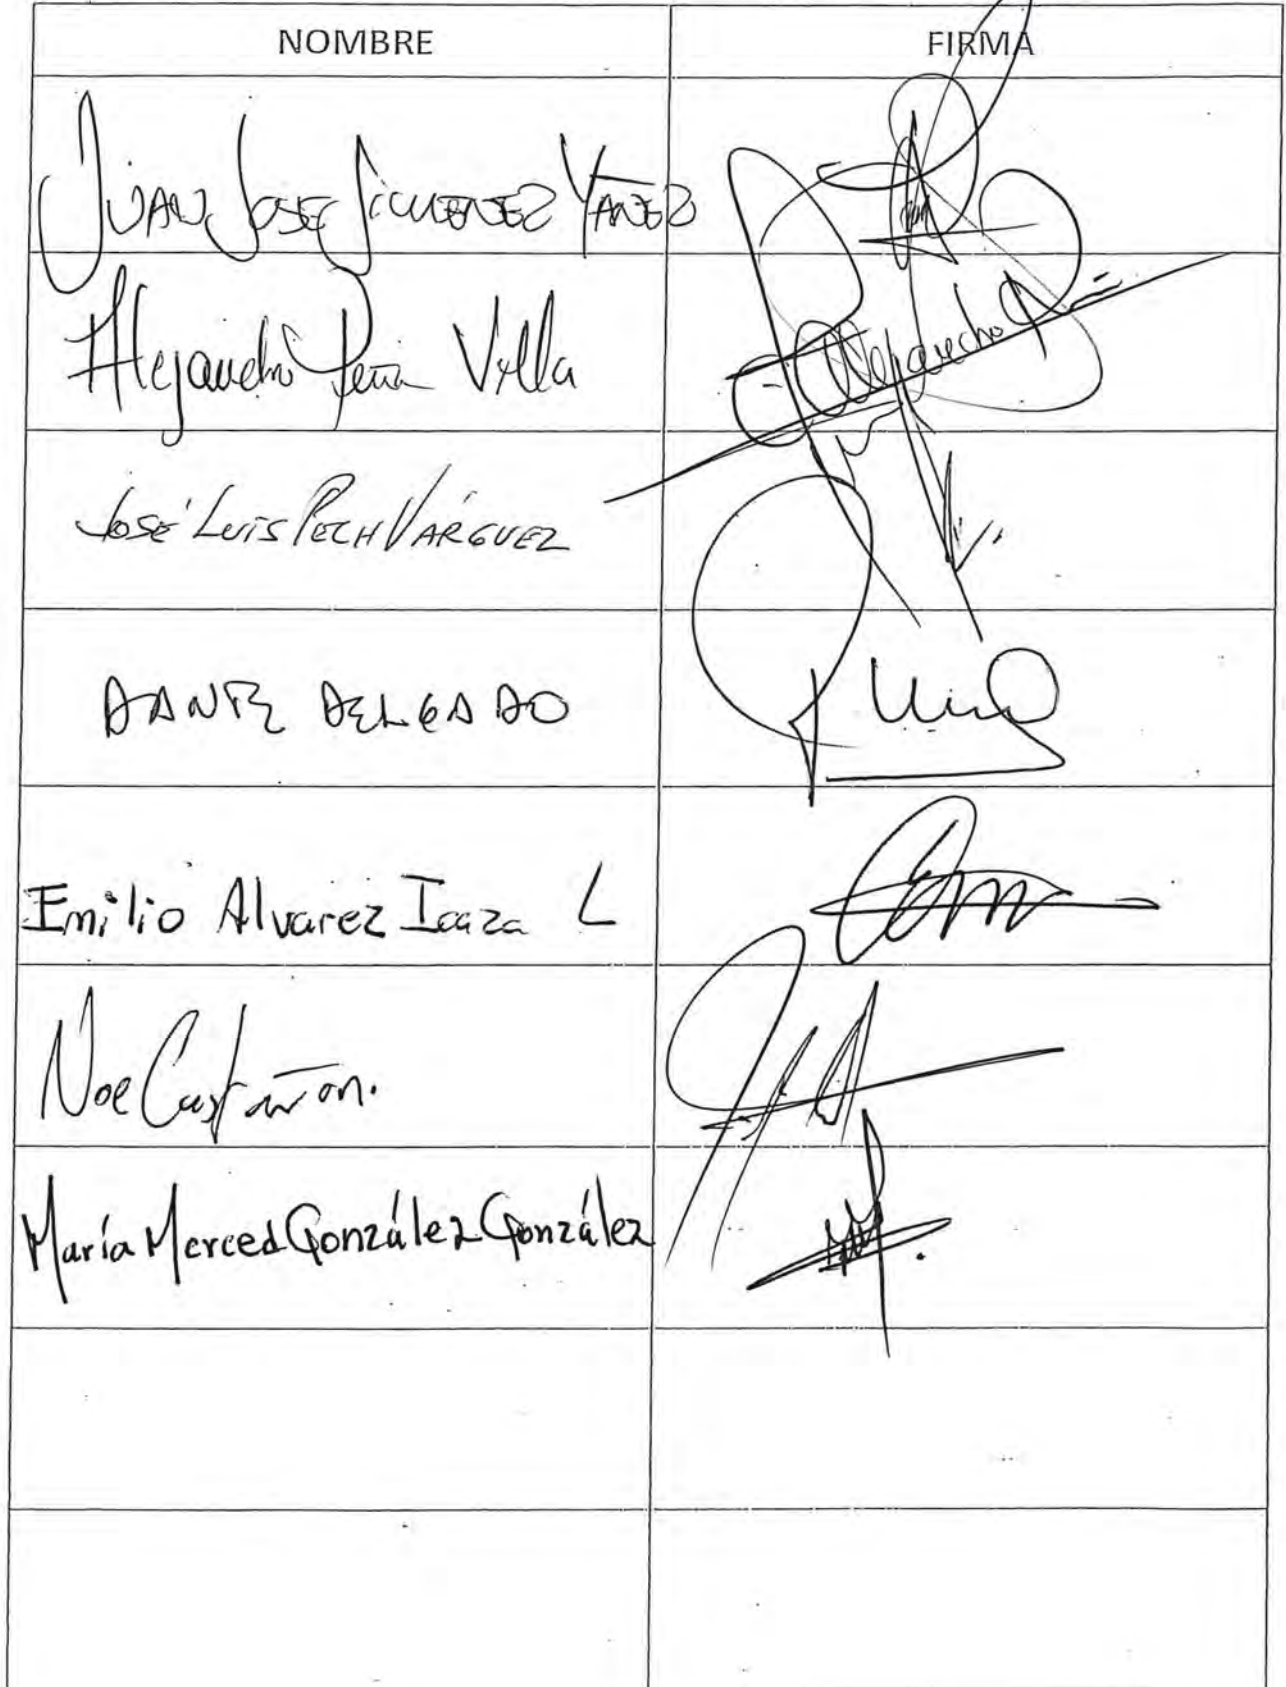 NOMBRE FIRMA
JUAN JOSE JIMENEZ YAÑEZ
Alejandro Peña Villa Alejandro
JOSÉ LUIS PECH VÁRGUEZ
DANTE DELGADO
Emilio Alvarez Icaza L
Noe Castañon.
María Merced González González